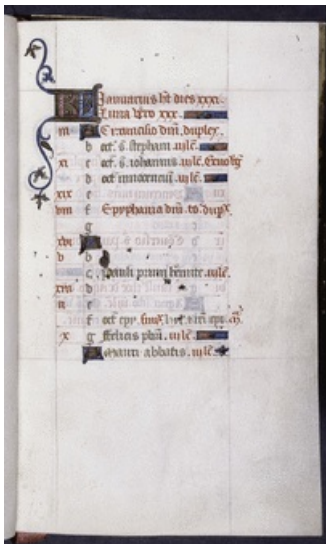 KL Januarius ht dies xxxi.
Luna vero xxx.
iii A Circumcisio dni. duplex.
b oct. s. stephani .iii. lc.
xi c oct. s. iohannis .iii. lc.
d oct. innocentum .iii. lc.
xix e
viii f Epyphania dni. to. dupx.
g
xvi A
v b
c Pauli primi heremite .iii. lc.
xiii d
ii e
f oct. epy.
x g Felicis .iii. lc.
A Mauri abbatis .iii. lc.